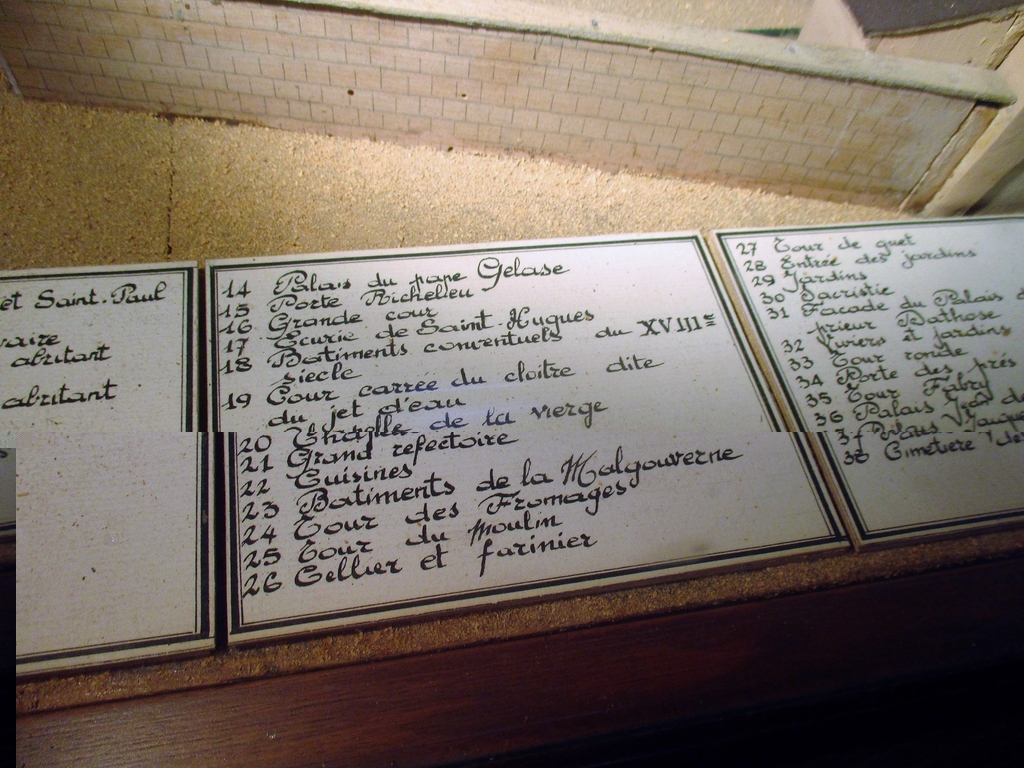 et Saint-Paul
abritant
abritant
14 Palais du pape Gelase
15 Porte Richelieu
16 Grande cour
17 Ecurie de Saint-Hugues
18 Batiments conventuels du XVIIIe
siecle
19 Cour carrée du cloitre dite
du jet d'eau
20 Chapelle de la vierge
21 Grand refectoire
22 Cuisines
23 Batiments de la Malgouverne
24 Tour des Fromages
25 Tour du Moulin
26 Cellier et farinier
27 Tour de guet
28 Entrée des jardins
29 Jardins
30 Sacristie
31 Facade du Palais
prieur
32 Viviers et jardins
33 Tour ronde
34 Porte des prés
35 Tour Fabry
36 Palais
37 Palais
38 Cimetiere